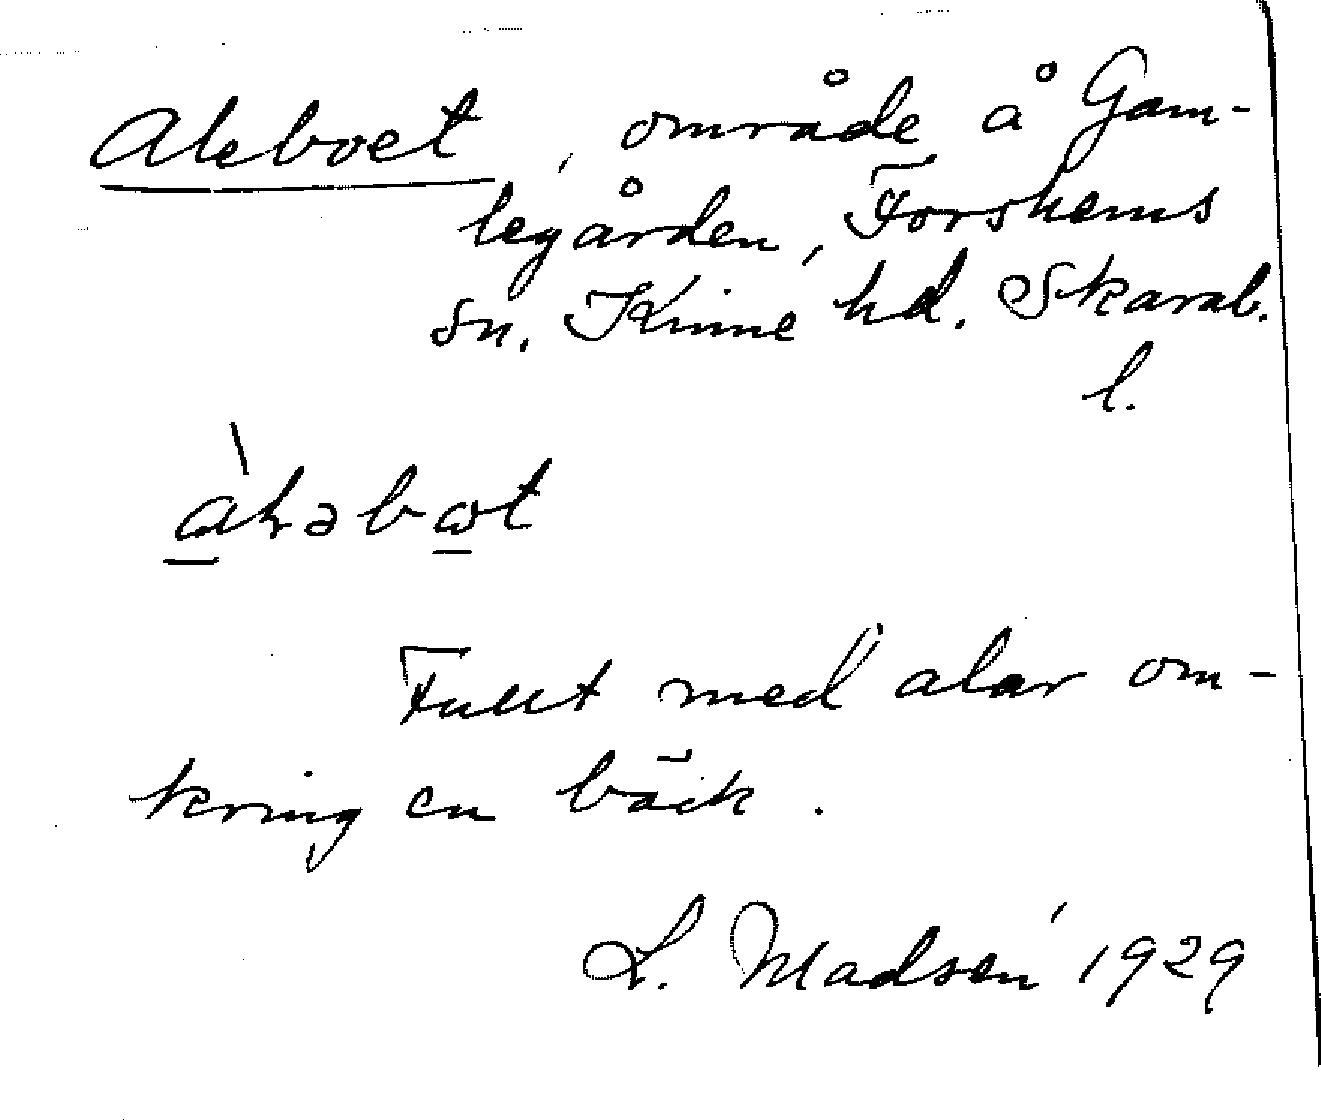 Aleboet, område å Gam-
legården, Forshems
sn. Kinne hd. Skarab.
l.
àɫəbωt
Fullt med alar om-
kring en bäck.
L. Madsén 1929